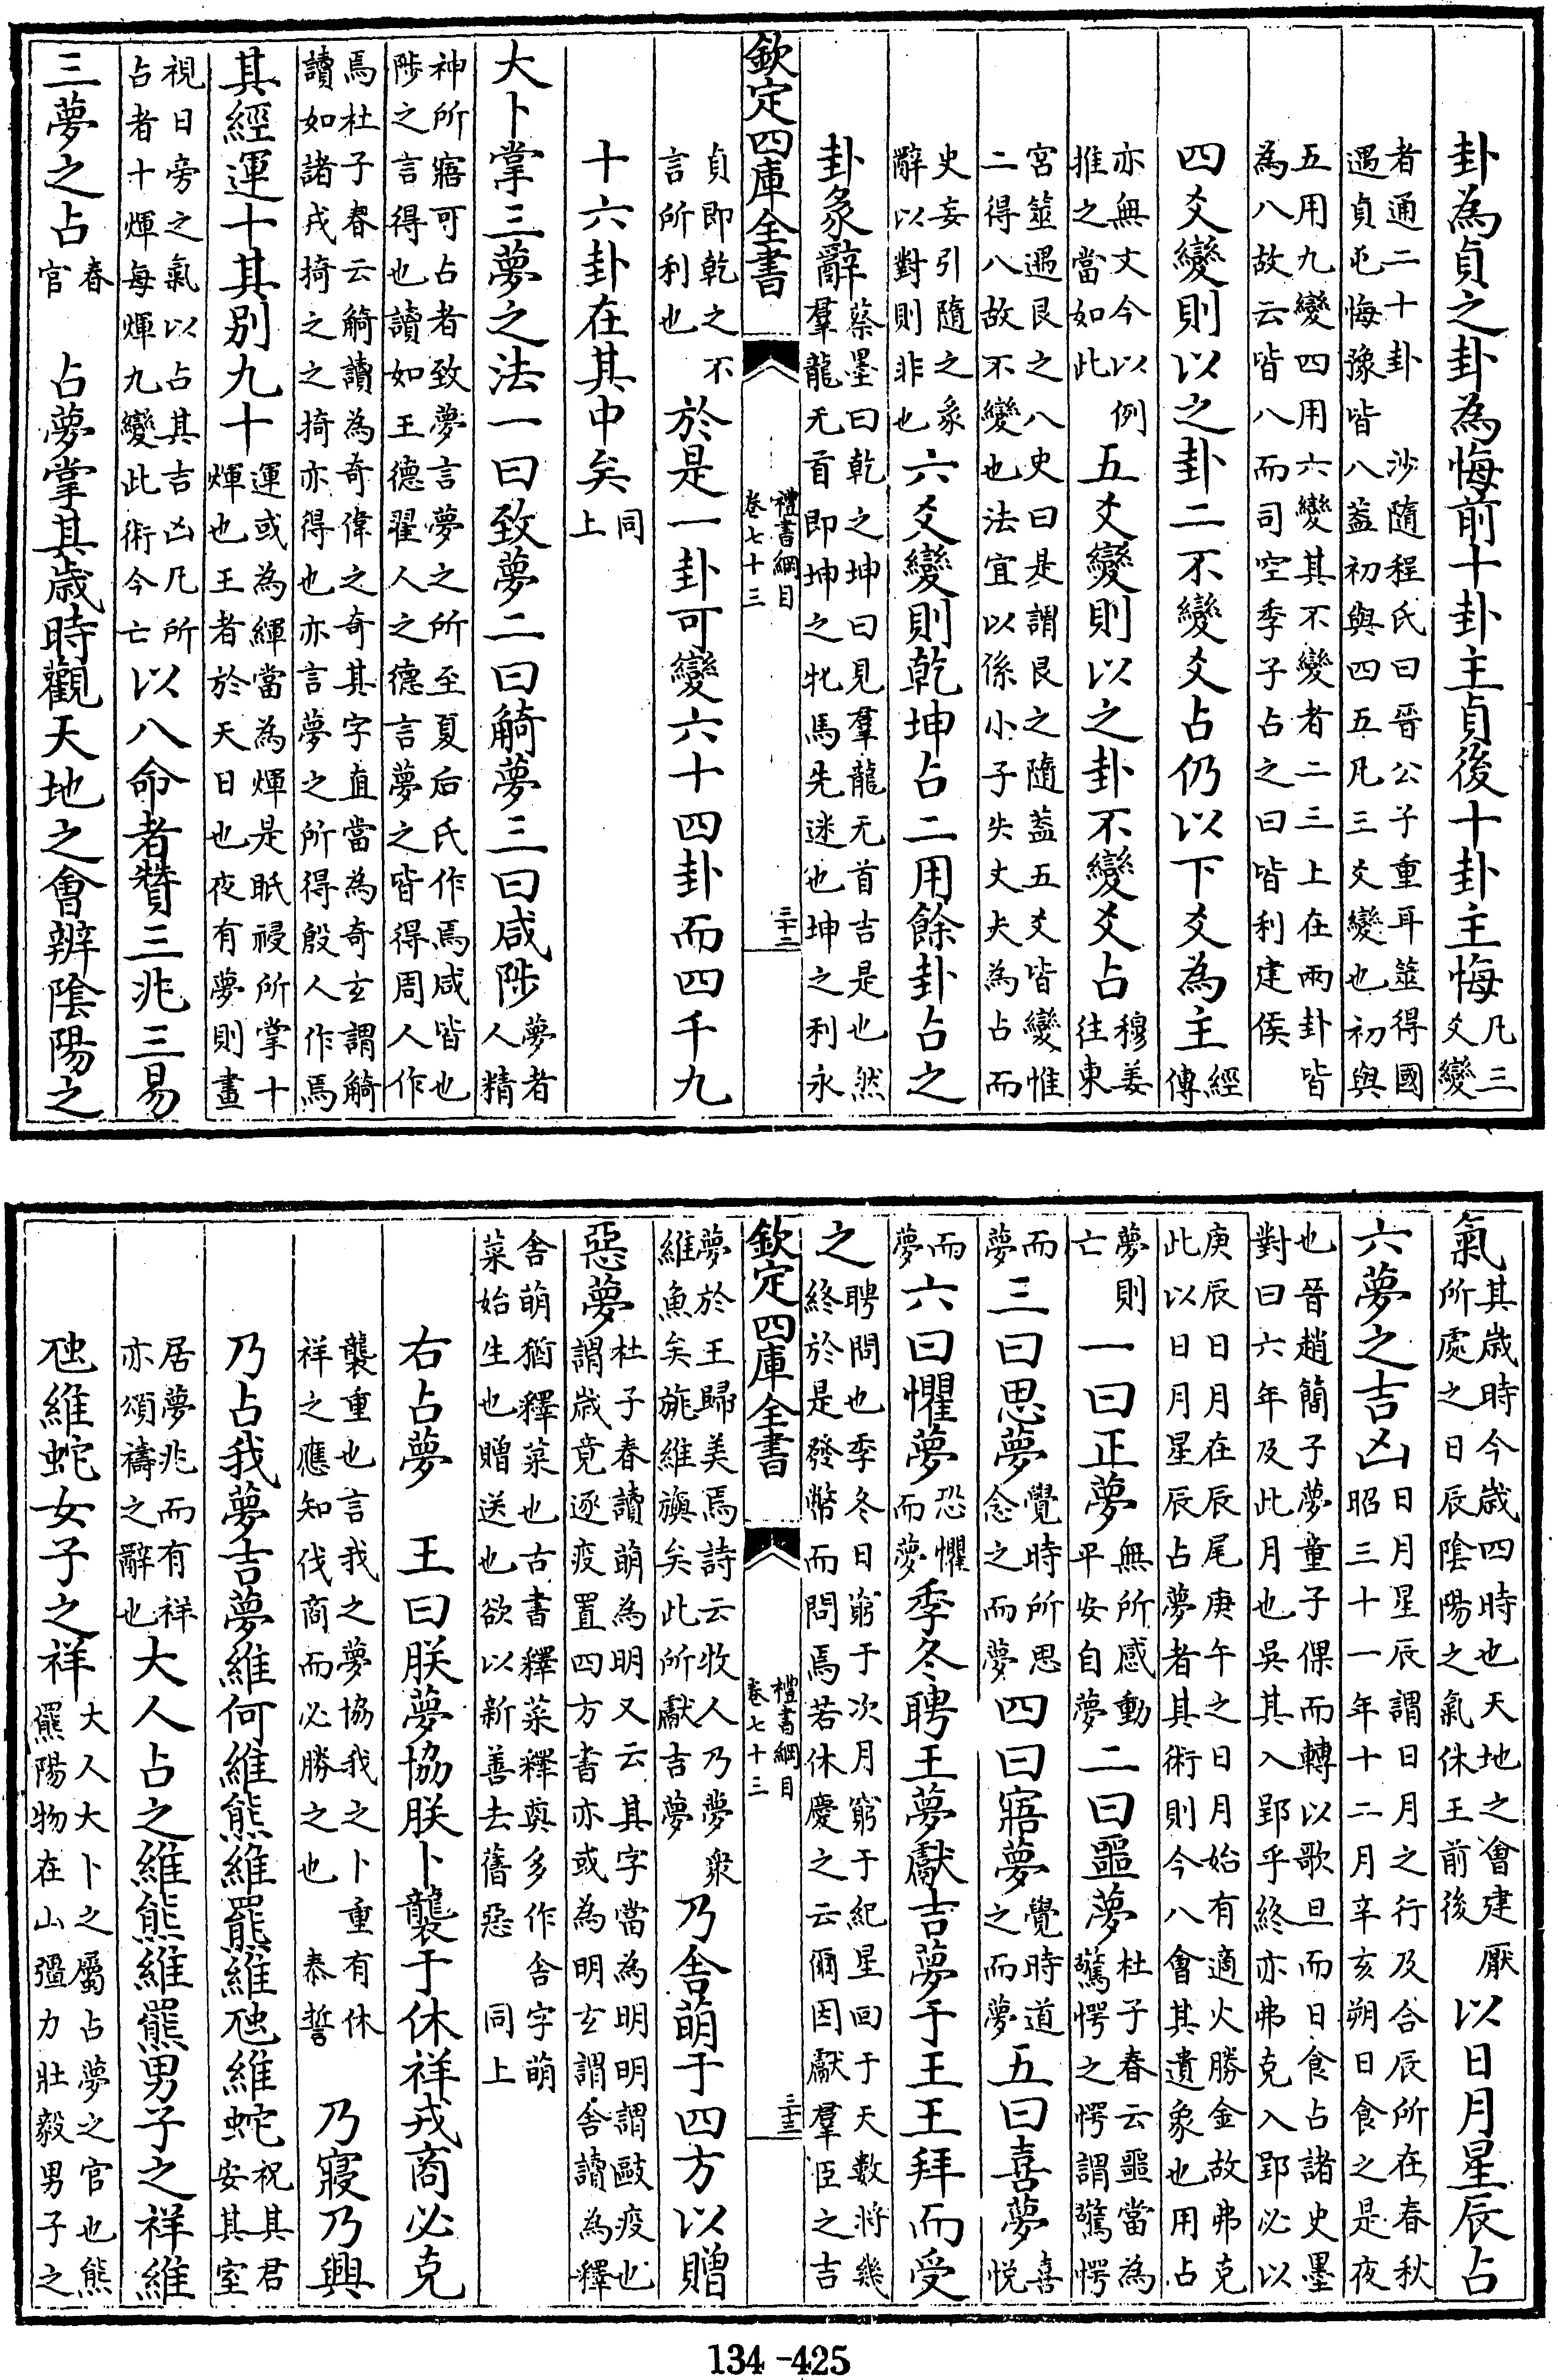 卦為貞之卦為悔前十卦主貞後十卦主悔凡三爻變
者通二十卦　沙隨程氏曰晉公子重耳筮得國遇貞屯悔豫皆八蓋初與四五凡三爻變也初與
五用九變四用六變其不變者二三上在兩卦皆為八故云皆八而司空季子占之曰皆利建侯
四爻變則以之卦二不變爻占仍以下爻為主經傳
亦無文今以例推之當如此五爻變則以之卦不變爻占穆姜往東
宮筮遇艮之八史曰是謂艮之隨蓋五爻皆變惟二得八故不變也法宜以係小子失丈夫為占而
史妄引隨之彖辭以對則非也六爻變則乾坤占二用餘卦占之
卦彖辭蔡墨曰乾之坤曰見羣龍无首吉是也然羣龍无首即坤之牝馬先迷也坤之利永
欽定四庫全書　禮書綱目　卷七十三　三十二
貞即乾之不言所利也於是一卦可變六十四卦而四千九
十六卦在其中矣同上
大卜掌三夢之法一曰致夢二曰觭夢三曰咸陟夢者人精
神所寤可占者致夢言夢之所至夏后氏作焉咸皆也陟之言得也讀如王德翟人之德言夢之皆得周人作
焉杜子春云觭讀為奇偉之奇其字直當為奇玄謂觭讀如諸戎掎之之掎亦得也亦言夢之所得殷人作焉
其經運十其別九十運或為緷當為煇是眡祲所掌十煇也王者於天日也夜有夢則晝
視日旁之氣以占其吉凶凡所占者十煇每煇九變此術今亡以八命者贊三兆三易
三夢之占春官　占夢掌其歲時觀天地之會辨陰陽之
氣其歲時今歲四時也天地之會建厭所處之日辰陰陽之氣休王前後以日月星辰占
六夢之吉凶日月星辰謂日月之行及合辰所在春秋昭三十一年十二月辛亥朔日食之是夜
也晉趙簡子夢童子倮而轉以歌旦而日食占諸史墨對曰六年及此月也吳其入郢乎終亦弗克入郢必以
庚辰日月在辰尾庚午之日月始有適火勝金故弗克此以日月星辰占夢者其術則今八會其遺象也用占
夢則亡一曰正夢無所感動平安自夢二曰噩夢杜子春云噩當為驚愕之愕謂驚愕
而夢三曰思夢覺時所思念之而夢四曰寤夢覺時道之而夢五曰喜夢喜悅
而夢六曰懼夢恐懼而夢季冬聘王夢獻吉夢于王王拜而受
之聘問也季冬日窮于次月窮于紀星回于天數將幾終於是發幣而問焉若休慶之云爾因獻羣臣之吉
欽定四庫全書　禮書綱目　卷七十三　三十三
夢於王歸美焉詩云牧人乃夢衆維魚矣旐維旟矣此所獻吉夢乃舍萌于四方以贈
惡夢杜子春讀萌為明又云其字當為明明謂毆疫也謂歲竟逐疫置四方書亦或為明玄謂舍讀為釋
舍萌猶釋菜也古書釋菜釋奠多作舍字萌菜始生也贈送也欲以新善去舊惡　同上
右占夢　王曰朕夢協朕卜襲于休祥戎商必克
襲重也言我之夢協我之卜重有休祥之應知伐商而必勝之也　泰誓　乃寢乃興
乃占我夢吉夢維何維熊維羆維虺維蛇祝其君安其室
居夢兆而有祥亦頌禱之辭也大人占之維熊維羆男子之祥維
虺維蛇女子之祥大人大卜之屬占夢之官也熊羆陽物在山彊力壯毅男子之
134-425